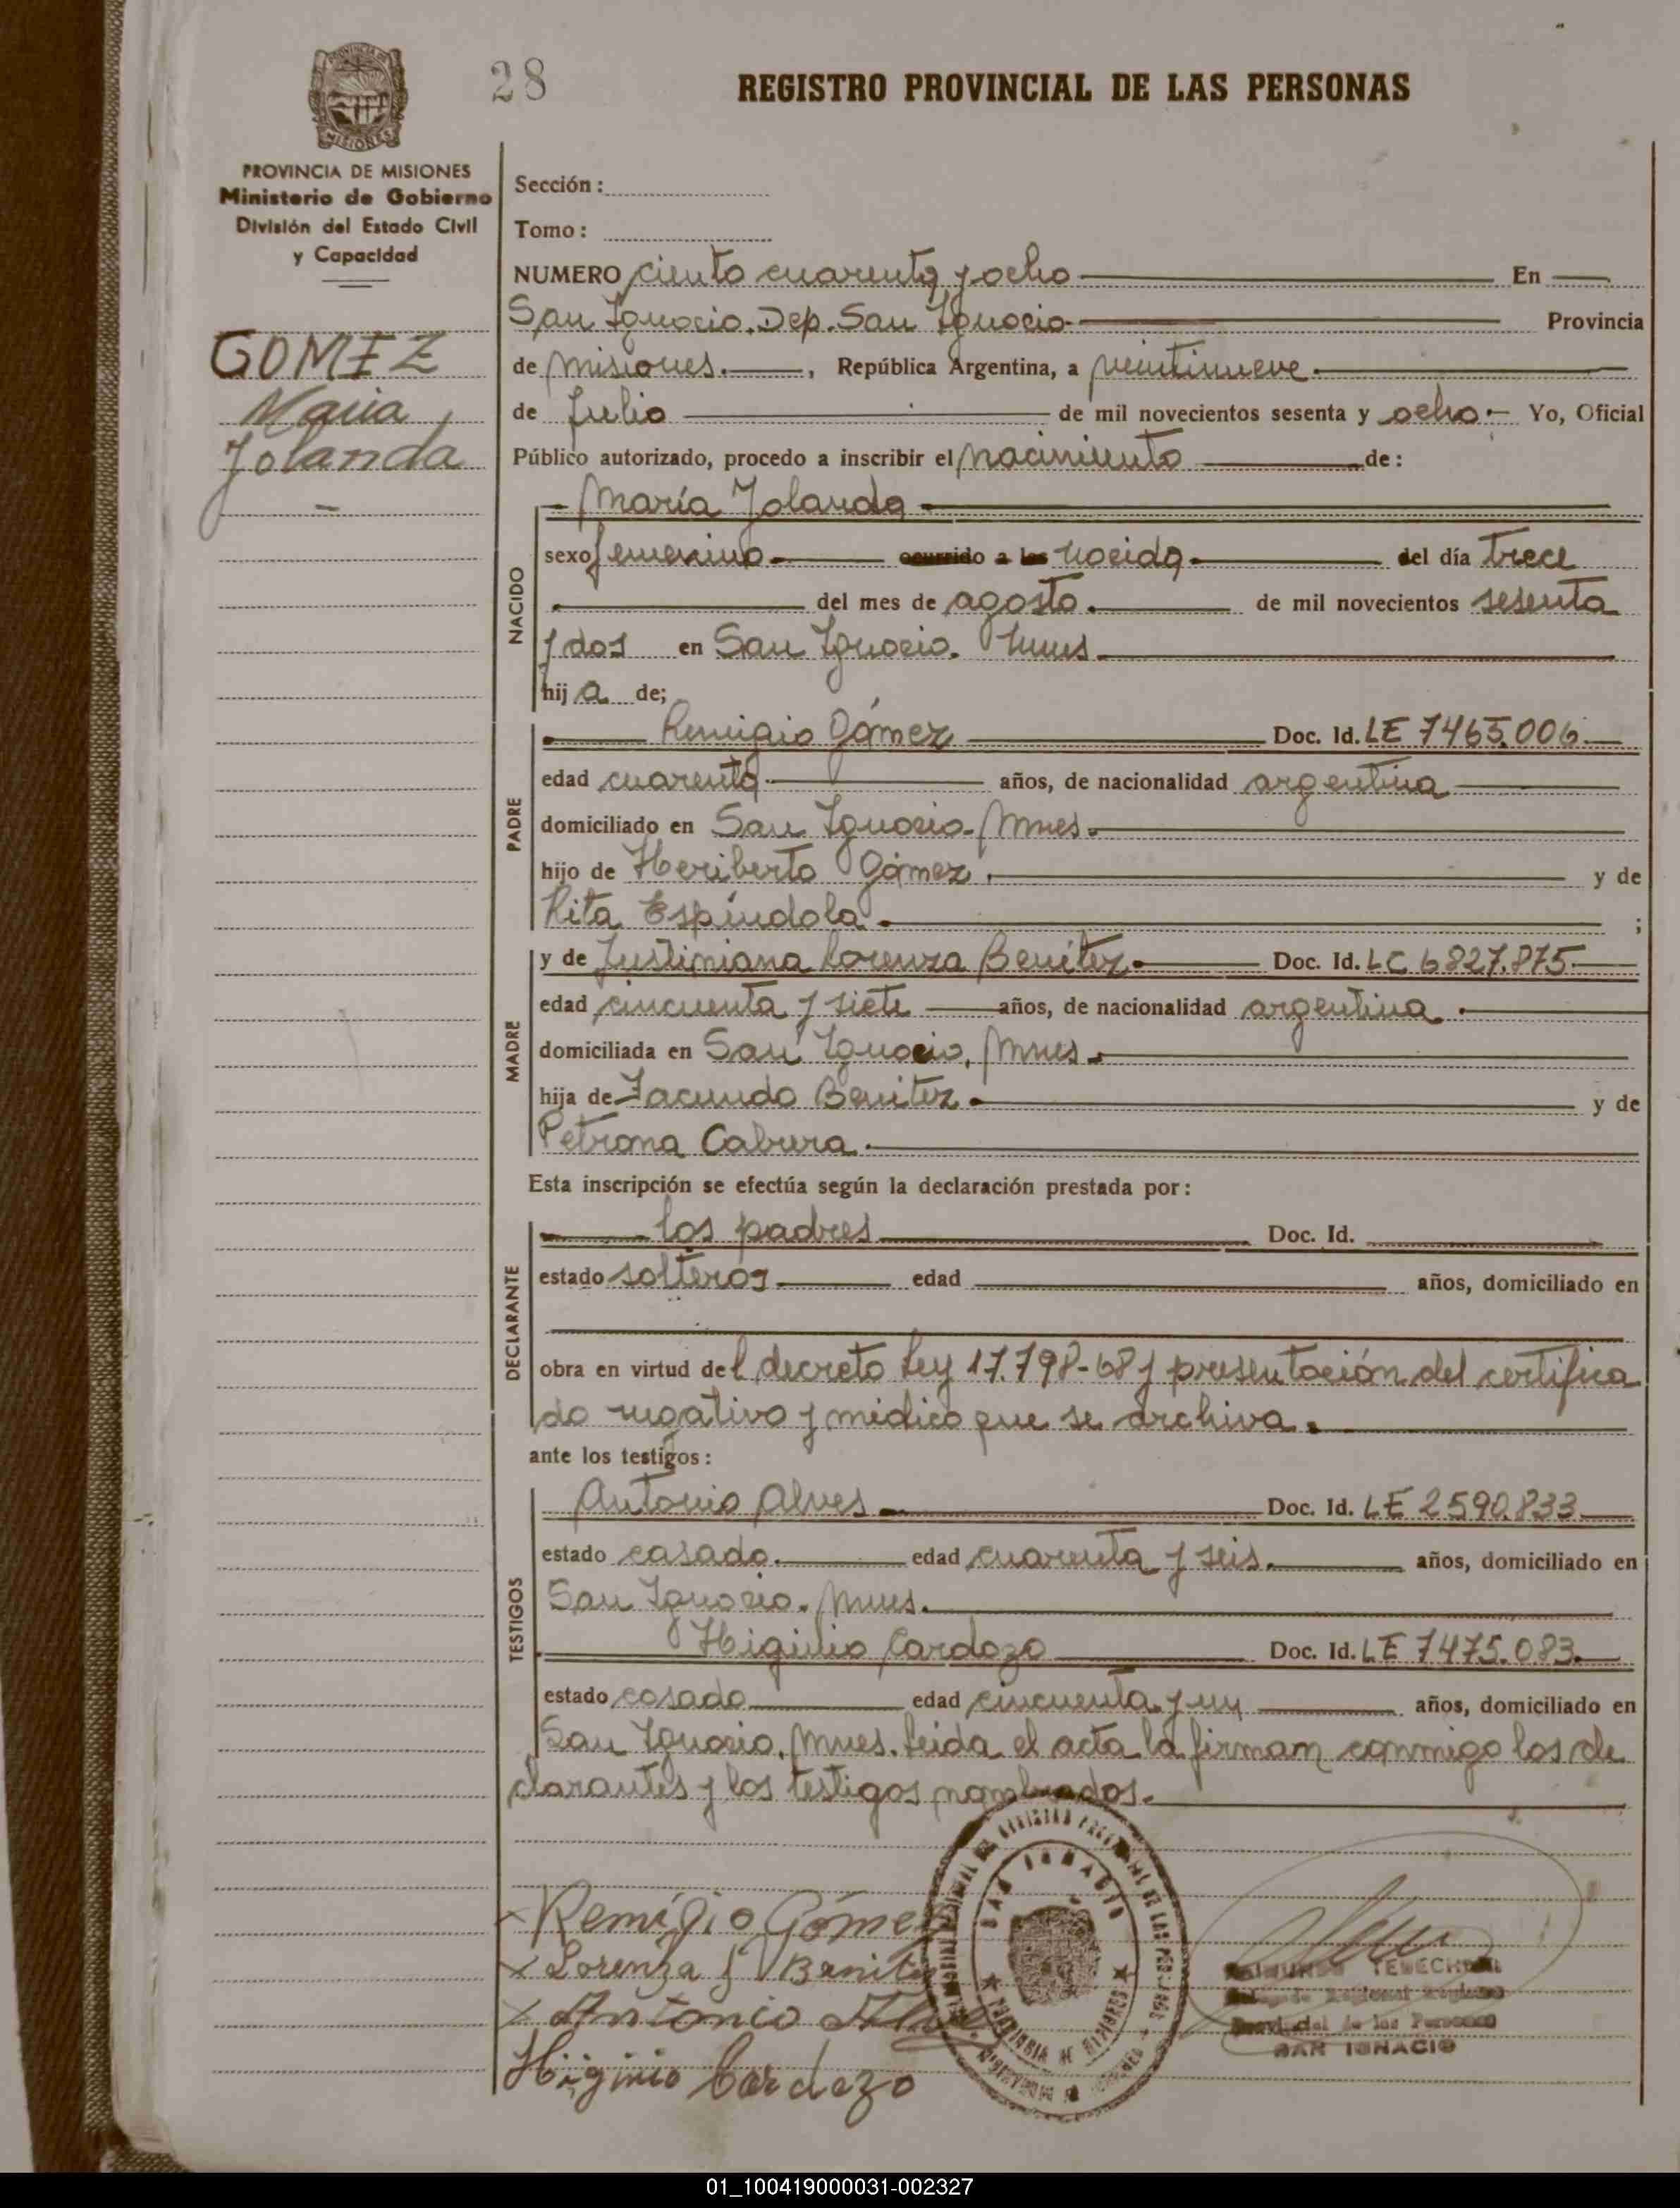 28
REGISTRO PROVINCIAL DE LAS PERSONAS
PROVINCIA DE MISIONES
Ministerio de Gobierno
División del Estado Civil
y Capacidad
GOMEZ
Maria
Yolanda
Sección:
Tomo:
NUMERO ciento cuarenta y ocho En
San Ignacio. Dep. San Ignacio. Provincia
de misiones. , República Argentina, a veintinueve.
de Julio de mil novecientos sesenta y ocho Yo, Oficial
Público autorizado, procedo a inscribir el nacimiento de:
María Yolanda
NACIDO
sexo femenino ocurrido a las nacida del día trece
del mes de agosto. de mil novecientos sesenta
y dos en San Ignacio.
hij a de;
PADRE
Remigio Gómez Doc. Id. LE 7465.006
edad cuarenta años, de nacionalidad argentina
domiciliado en San Ignacio. Mnes.
hijo de Heriberto Gómez. y de
Rita Espíndola. ;
MADRE
y de Justiniana Lorenza Benítez. Doc. Id. LC 6827.875
edad cincuenta y siete años, de nacionalidad argentina.
domiciliada en San Ignacio, Mnes.
hija de Facundo Benitez. y de
Petrona Cabrera.
Esta inscripción se efectúa según la declaración prestada por:
DECLARANTE
los padres Doc. Id.
estado solteros edad años, domiciliado en
obra en virtud del decreto ley 17.798-68 y presentación del certifica
do negativo y médico que se archiva.
ante los testigos:
TESTIGOS
Antonio Alves Doc. Id. LE 2590.833
estado casado. edad cuarenta y seis. años, domiciliado en
San Ignacio. Mnes.
Higinio Cardozo Doc. Id. LE 7475.083.
estado casado edad cincuenta y un años, domiciliado en
San Ignacio, Mnes. Leida el acta la firman conmigo los de
clarantes y los testigos nombrados.
Remigio Gómez
Lorenza J Benitez
Antonio Alves
Higinio Cardozo
SAN IGNACIO
DE LAS PERSONAS
TELECHEA
Provincial de las Personas
SAN IGNACIO
01_100419000031-002327